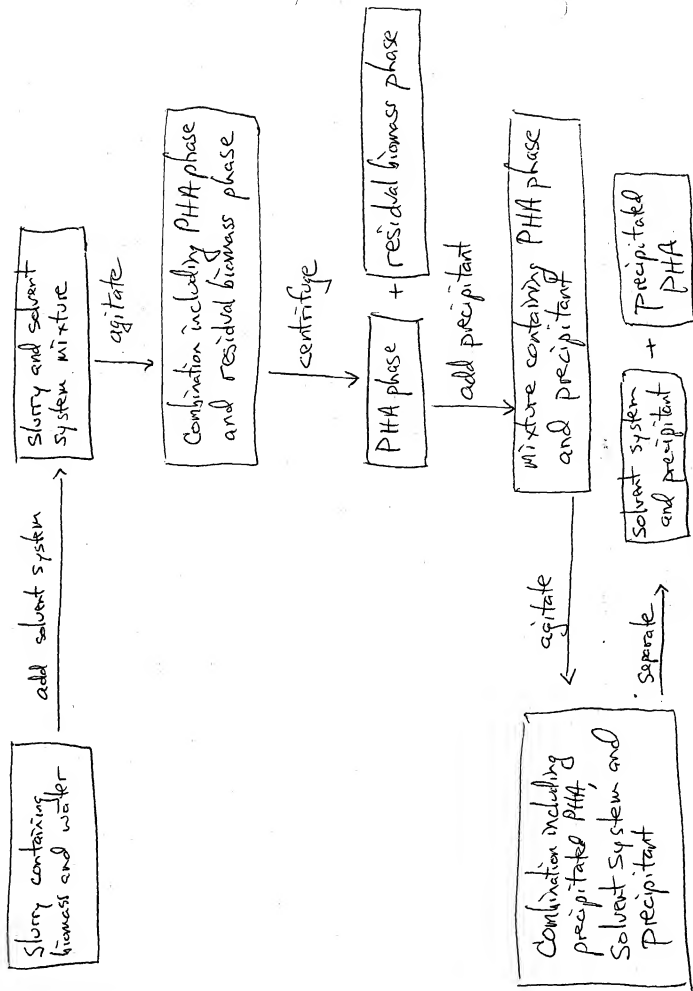 Slurry containing
biomass and water
add solvent system
Slurry and solvent
system mixture
agitate
Combination including PHA phase
and residual biomass phase
centrifuge
PHA phase
+
residual biomass phase
add precipitant
Mixture containing PHA phase
and precipitant
agitate
Combination including
precipitated PHA,
Solvent System and
precipitant
separate
Solvent system
and precipitant
+
Precipitated
PHA